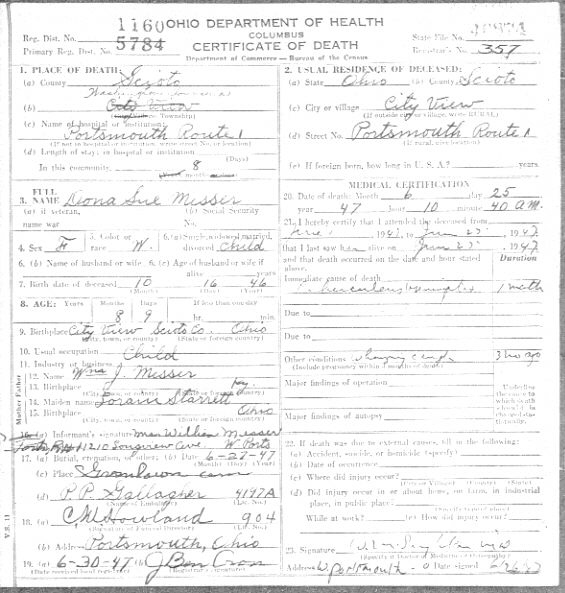 1160
OHIO DEPARTMENT OF HEALTH
COLUMBUS
CERTIFICATE OF DEATH
Department of Commerce—Bureau of the Census
Reg. Dist. No.
Primary Reg. Dist. No. 5784
State File No.
Registrar's No. 357
1. PLACE OF DEATH:
(a) County Scioto
(b) City View
Township)
(c) Name of hospital or institution:
Portsmouth Route 1
(If not in hospital or institution, write street No. or location)
(d) Length of stay: in hospital or institution
(Days)
In this community 8
months
2. USUAL RESIDENCE OF DECEASED:
(a) State Ohio (b) County Scioto
(c) City or village City View
(If outside city or village, write RURAL)
(d) Street No. Portsmouth Route 1
(If rural, give location)
(e) If foreign born, how long in U. S. A.? years
3. FULL NAME Diona Sue Messer
(a) If veteran, name war
(b) Social Security No.
4. Sex F
5. Color or race W.
6. (a) Single, widowed, married, divorced Child
6. (b) Name of husband or wife
6. (c) Age of husband or wife if alive years
7. Birth date of deceased 10 16 46
(Month) (Day) (Year)
8. AGE: Years Months Days If less than one day
8 9
hr. min.
9. Birthplace City View Scioto Co. Ohio
(City, town, or county) (State or foreign country)
10. Usual occupation Child
11. Industry or business
12. Name Wm J. Messer
13. Birthplace Ky.
(City, town, or county) (State or foreign country)
14. Maiden name Starrett
15. Birthplace Ohio
(City, town, or county) (State or foreign country)
Mother Father
16. (a) Informant's signature Mrs William Messer
1210 Longview Ave. W. Ports
17. (a) Burial, cremation, or other; (b) Date 6-27-47
(Month) (Day) (Year)
(c) Place
(d) P. P. Gallagher 4197A
(Name of Embalmer) (Lic. No.)
18. C. M. Howland 904
(Signature of Funeral Director) (Lic. No.)
(b) Address Portsmouth, Ohio
19. (a) 6-30-47 (b) J Ben Cron
(Date received local registrar) (Registrar's signature)
V. S. 11
MEDICAL CERTIFICATION
20. Date of death: Month 6 day 25
year 47 hour 10 minute 40 AM.
21. I hereby certify that I attended the deceased from
1947, to June 25 1947
that I last saw her alive on June 25 1947
and that death occurred on the date and hour stated above.
Duration
Immediate cause of death
1 month
Due to
Due to
Other conditions Whooping cough 3 mo ago
(Include pregnancy within 3 months of death)
Major findings of operation
Major findings of autopsy
Underline the cause to which death should be
22. If death was due to external causes, fill in the following:
(a) Accident, suicide, or homicide (specify)
(b) Date of occurrence
(c) Where did injury occur?
(City or Village) (County) (State)
(d) Did injury occur in or about home, on farm, in industrial
place, in public place?
(Specify type of place)
While at work? (e) How did injury occur?
23. Signature
(Specify if Doctor of Medicine or Osteopathy)
Address W. Portsmouth - O Date signed